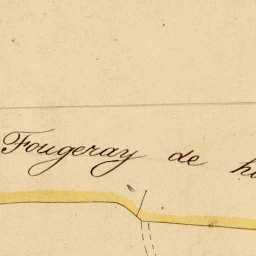 Fougeray de